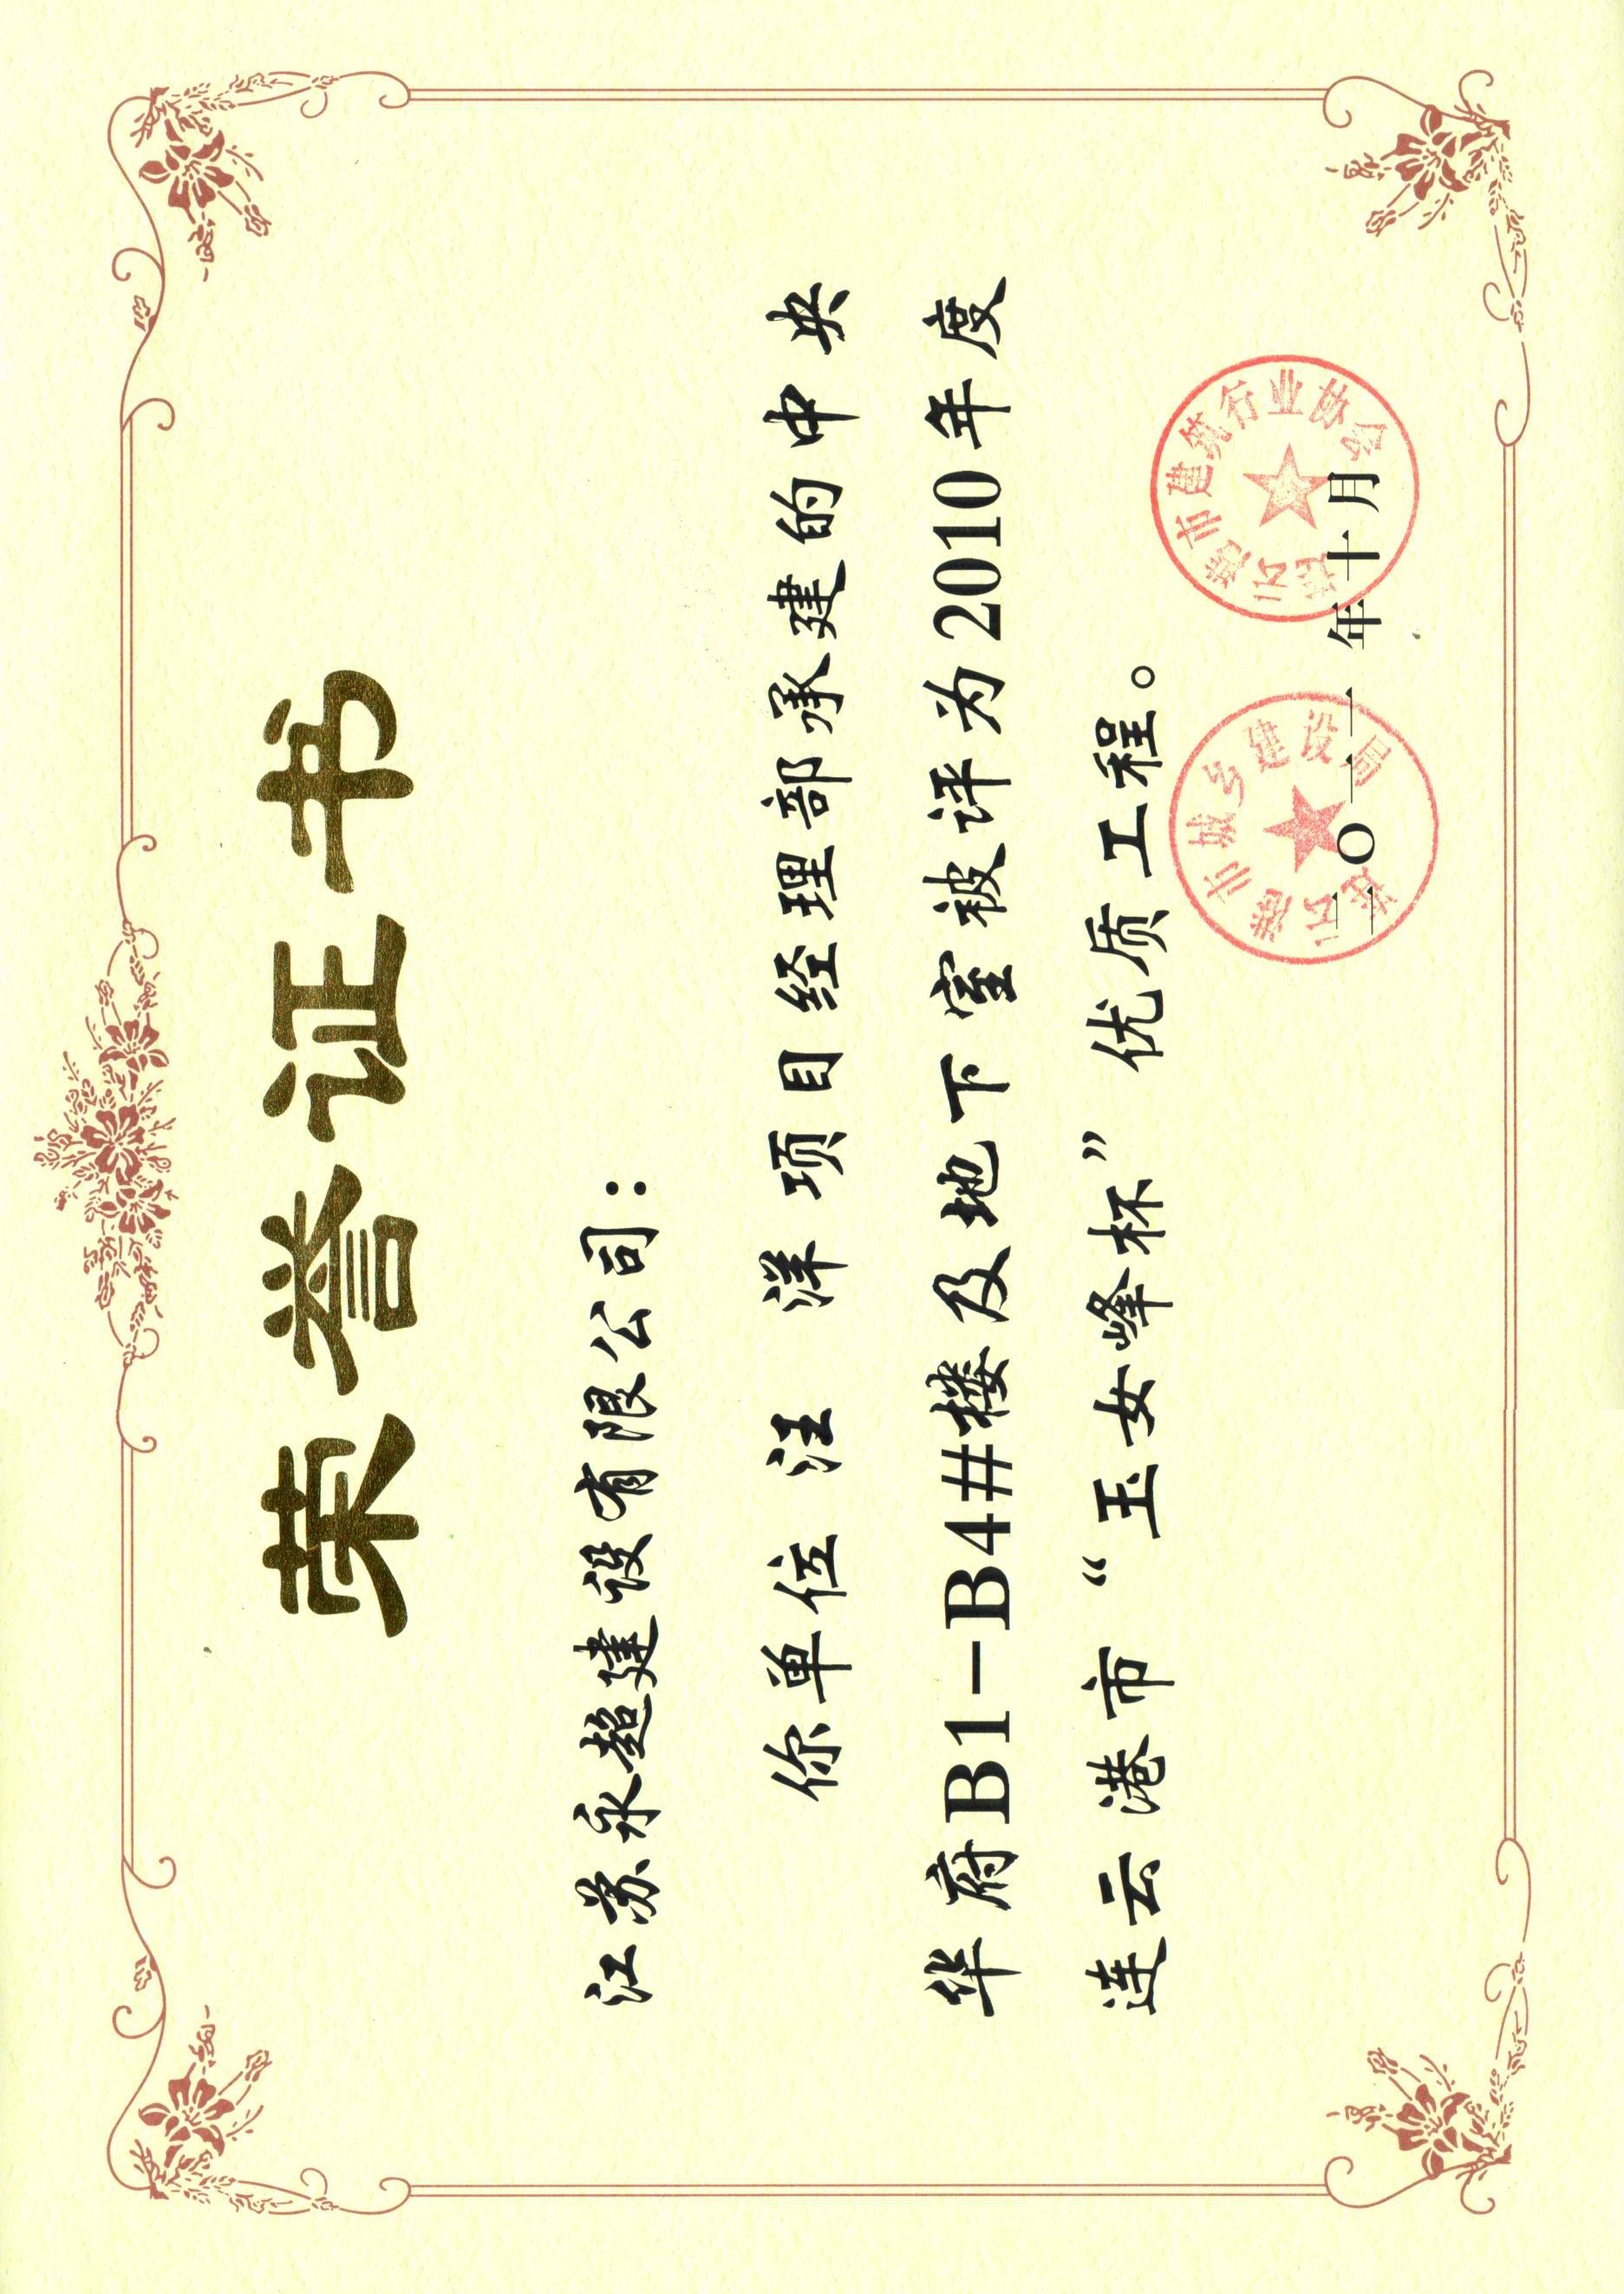 荣誉证书
江苏永超建设有限公司：
你单位 汪 洋 项目经理部承建的中央
华府B1-B4#楼及地下室被评为2010年度
连云港市“玉女峰杯”优质工程。
连云港市城乡建设局
连云港市建筑行业协会
二〇一一年十月